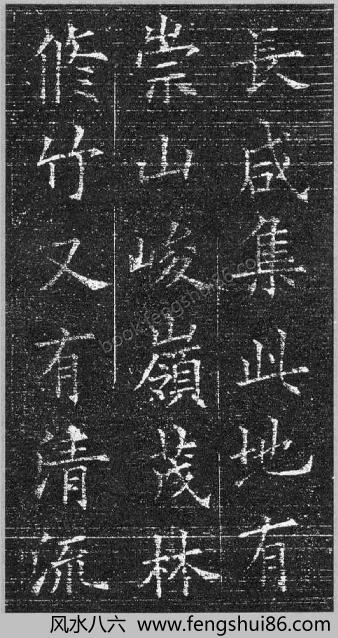 長咸集此地有
崇山峻嶺茂林
修竹又有清流
book.fengshui86.com
风水八六 www.fengshui86.com